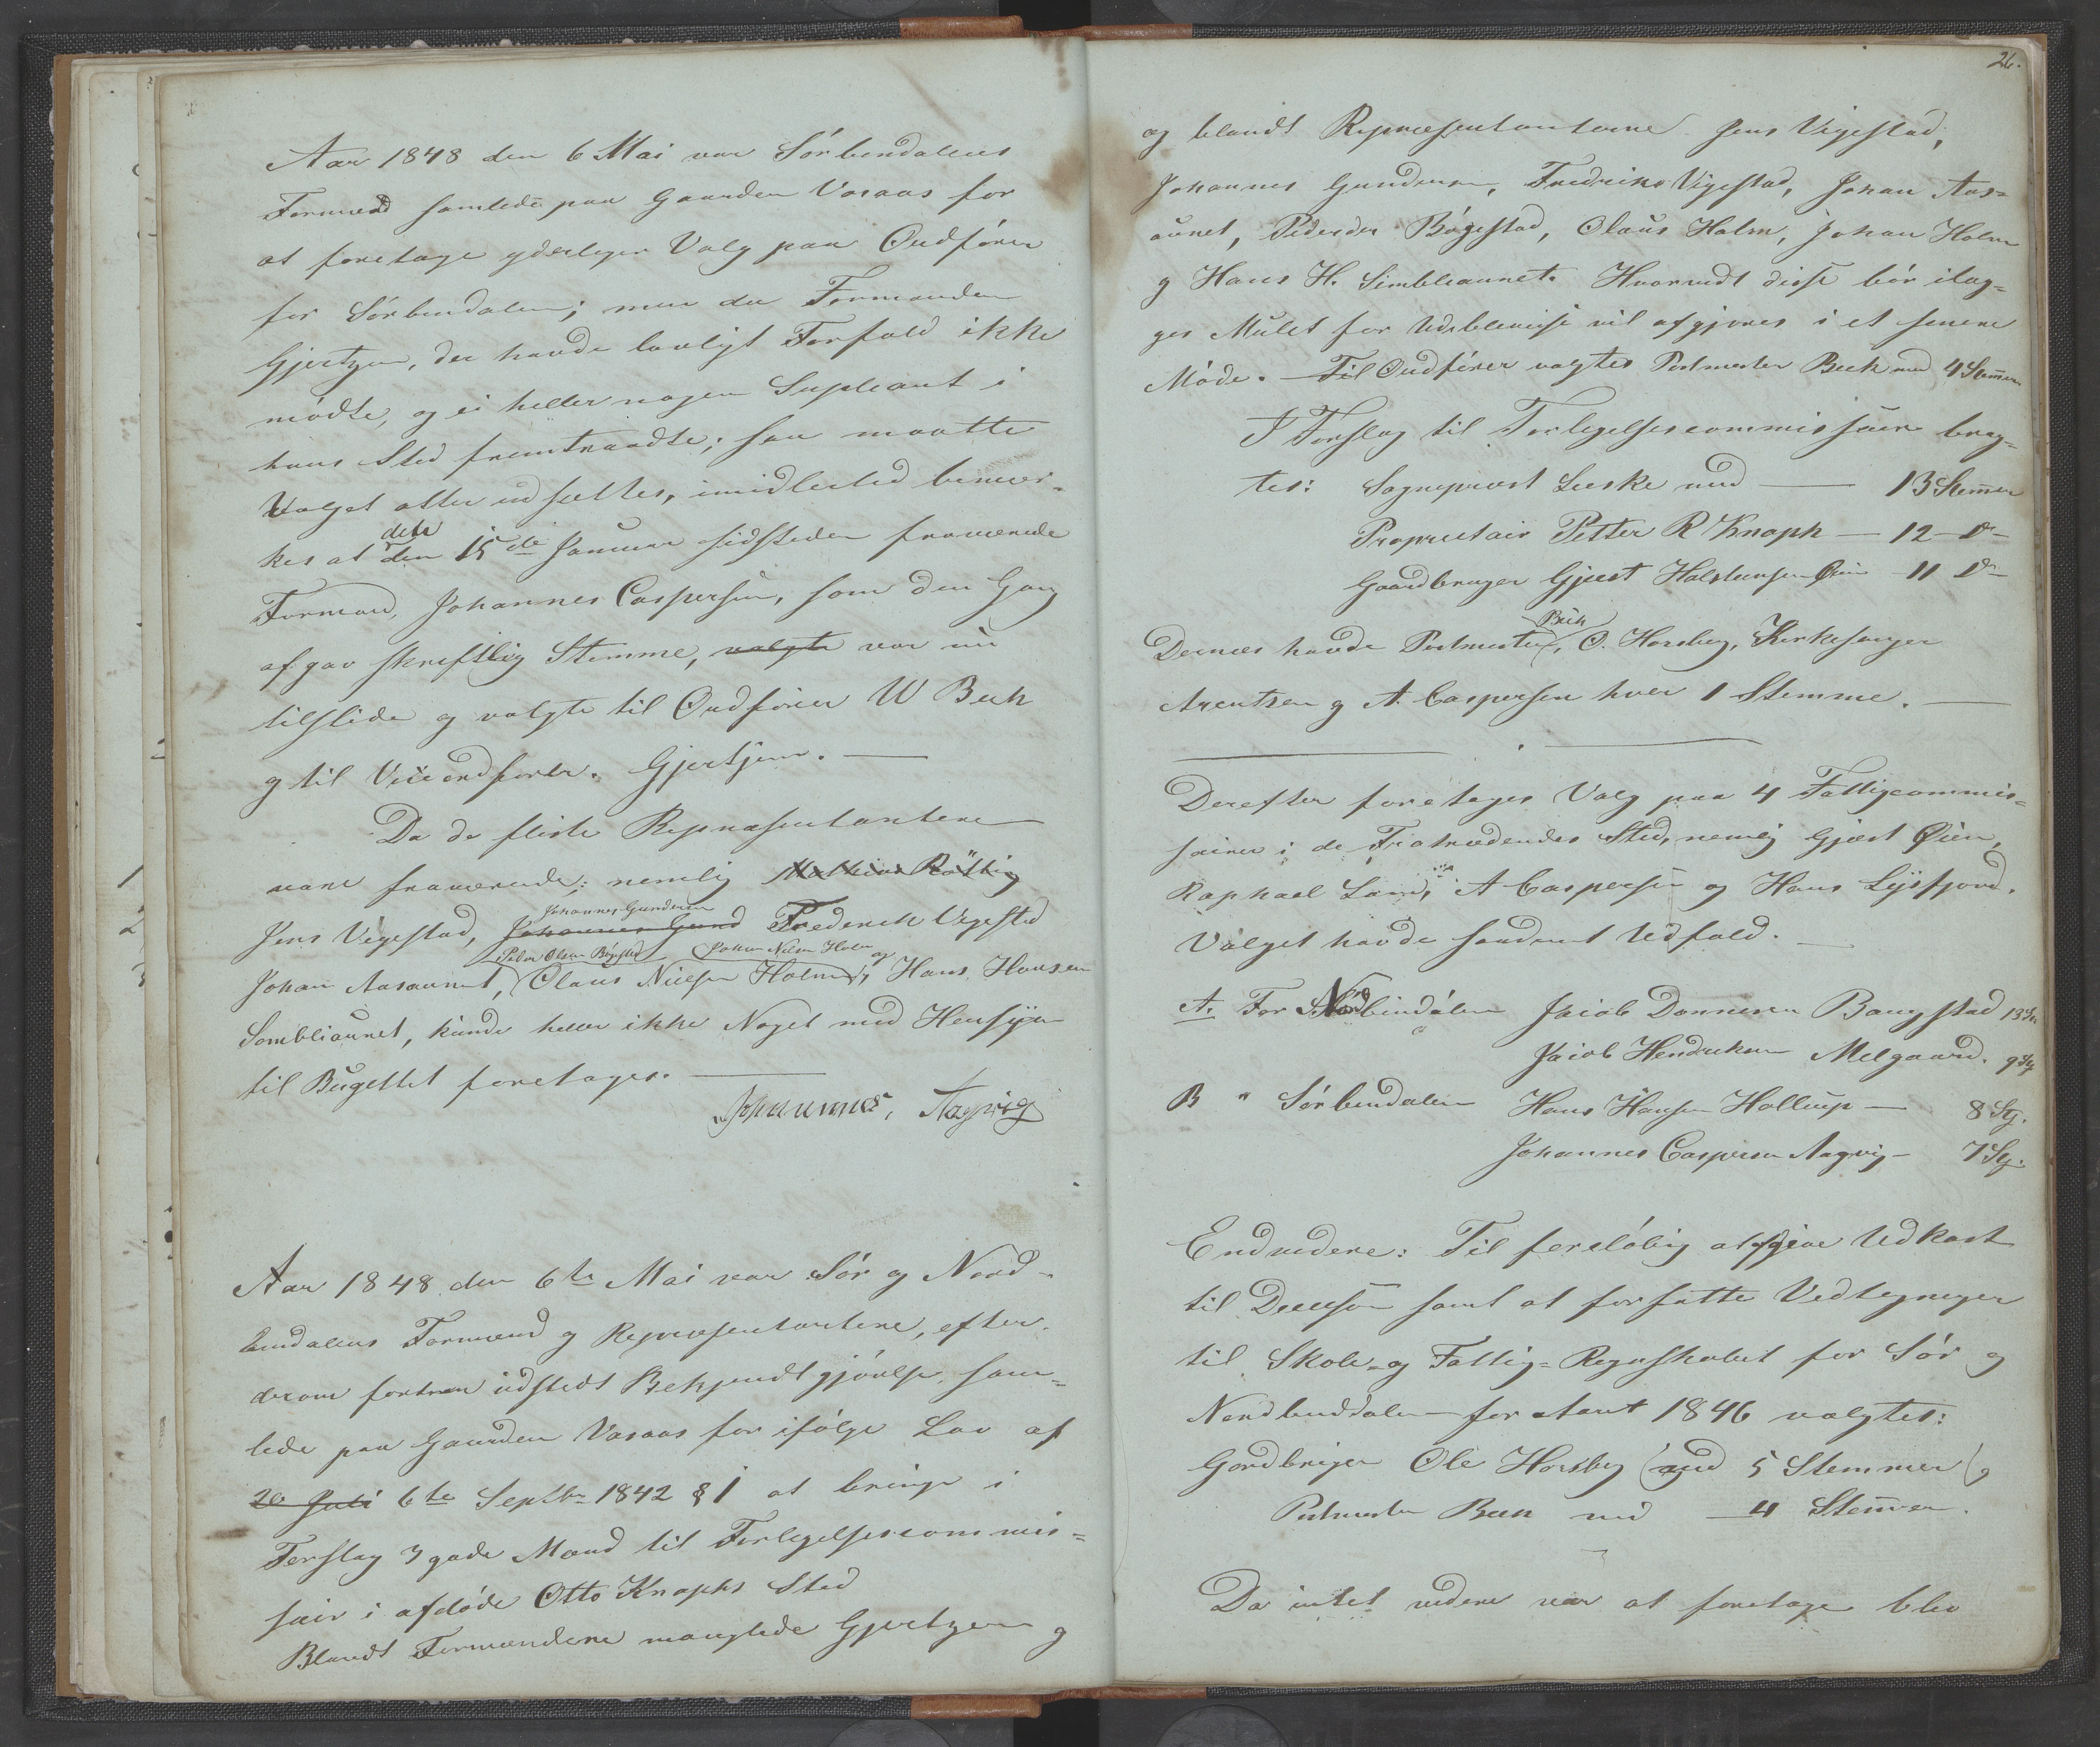 Aar 1848 den 6 Mai var Sörbindalens
Formænd samlede paa Gaarden Vasaas for
at foretage yderligere Valg paa Ordförer
for Sörbindalen; men da Formanden
Gjertzen, der havde lovligt Forfald ikke
mödte, og ei heller nogen Supleant i
hans Sted fremtraadte; saa maatte
Valget atter udsættes, imidlertid bemær-
kes at den den 15de Januar sidstleden fraværende
Formand, Johannes Caspersen, som den Gang
afgav skriftlig Stemme, valgte var nu
tilstede og valgte til Ordförer W Beck
og til Viceordförer Gjertzen. —
Da de fleste Repræsentantere
vare fraværende: nemlig Mathias Röttig
Johannes Gundersen
Jens Vegestad, Johannes Gund Frederik Vegestad
Peder Olsen Bögestad Johan Nilsen Holm og
Johan Aasaunet, Olaus Nielsen Holm, Hans Hansen
Sombliaunet, kunde heller ikke Noget med Hensyn
til Bugettet foretages. —
Johannes, Aagvig
Aar 1848 den 6te Mai var Sör og Nord-
bindalens Formænd og Repræsentantere, efter
derom forhen udstedt Bekjendtgjörelse, sam-
lede paa Gaarden Vasaas for ifölge Lov af
20 Juli 6te Septbr 1842 § 1 at bringe i
Forslag 3 gode Mænd til Forligelsescommis-
sair i afdöde Otto Knophs Sted
Blandt Formændene manglede Gjertzen og
26.
og blandt Repræsentanterne Jens Vegestad,
Johannes Gundersen, Fredrik Vigestad, Johan Aas-
aunet, Peder Bögestad, Olaus Holm, Johan Holm
og Hans H. Simbleaunet. Hvorvidt disse bör ilæg-
ges Mulct for Udeblivelse vil afgjöres i et senere
Möde. — Til Ordförer valgtes Postmester Beck med 4 Stemmer
I Forslag til Forligelsescommissair brag-
tes: Sognepræst Leeske med — 13 Stemmer
Proprietair Petter R Knoph — 12 — Do —
Gaardbruger Gjæst Halstensen Öien — 11 Do —
Beck
Dernæst havde Postmester, O. Horsberg, Kirkesanger
Arentsen og A. Caspersen hver 1 Stemme. —
Derefter foretages Valg paa 4 Fattigcommis-
sairer i de Fratrædendes Sted, nemlig Gjæst Öien,
Raphael Lande, A Caspersen og Hans Lysfjord.
Valget havde saadant Udfald. —
A. For Nordbindalen Jacob Donnesen Bangstad 13 St
Jacob Hendriksen Melgaard. 9 St
B " Sörbindalen Hans Hansen Hollup — 8 St.
Johannes Caspersen Aagvig — 7 St.
Endvidere: Til forelöbig at afgive Udkast
til Decision samt at forfatte Vedtegninger
til Skole- og Fattig-Regnskabet for Sör og
Nordbindalen for Aaret 1846 valgtes:
Gaardbruger Ole Horsberg (med 5 Stemmer) og
Postmester Beck med — 4 Stemmer.
Da intet videre var at foretage blev